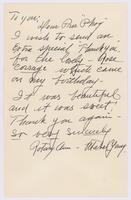 To you,
I wish to send an
extra special Thank you
for the lovely Rose
Corsage which came
on my birthday.
It was beautiful
and it was sweet
Thank you again -
So very sincerely